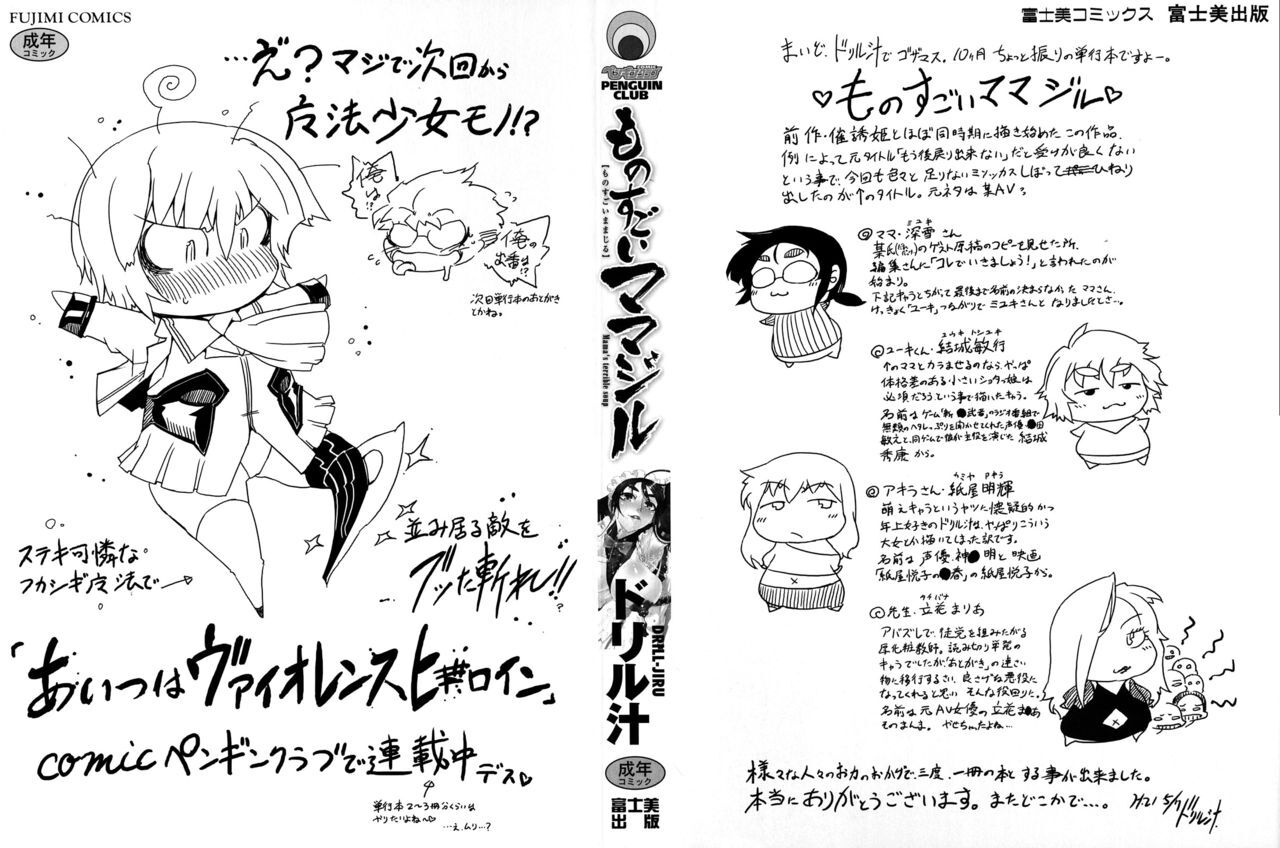 FUJIMI COMICS
成年
コミック
…え？マジで次回から
魔法少女モノ!?
俺は!?
俺の
出番は!?
次回単行本のあとがき
とかね。
ステキ可憐な
フカシギ魔法で→
並み居る敵を
ブッた斬れし!!
「あいつはヴァイオレンスヒロイン」
comicペンギンクラブで連載中デス♡
単行本2〜3冊分くらいは
やりたいよね〜♡
…え、ムリ…?
COMIC
PENGUIN
CLUB
ものすごいママジル
【ものすごいままじる】
Mama's terrible soup
ドリル汁
DRILL-JIRU
成年
コミック
富士美
出版
富士美コミックス 富士美出版
まいど、ドリル汁でゴザマス。10ヶ月ちょっと振りの単行本ですよー。
♡ものすごいママジル♡
前作・催誘姫とほぼ同時期に描き始めたこの作品、
例によって元タイトル「もう後戻り出来ない」だと受けが良くない
という事で、今回も色々と足りないミソッカスしぼってひねり
出したのが↑のタイトル。元ネタは某AV
ミユキ
ママ・深雪さん
某氏のゲスト原稿のコピーを見せた所、
編集さんに「コレでいきましょう!」と言われたのが
始まり。
下記キャラとちがって最後まで名前の決まらなかったママさん、
けっきょく「ユーキ」つながりでミユキさんとなりましたとさ…。
ユウキ トシユキ
ユーキくん・結城敏行
↑のママとカラませるのなら、やっぱ
体格差のある小さいショタっ娘は
必須だろうという事で描いたキャラ。
名前はゲーム「斬●武者」のラジオ番組で
無類のヘタレっぷりを聞かせてくれた声優・●田
敏えと、同ゲームで彼が主役を演じた結城
秀康から。
カミヤ アキラ
アキラさん・紙屋明輝
萌えキャラというヤツに懐疑的かつ
年上好きのドリル汁、やっぱりこういう
大女しか描いてしまった訳です。
名前は声優・神●明と映画
「紙屋悦子の●春」の紙屋悦子から。
タチバナ
先生・立花まりあ
アバズレで、徒党を組みたがる
厚化粧教師。読み切り単発の
キャラでしたが「あとがき」の迷さい
物に移行するさい、良さげな悪役に
なってくれると思い そんな役回りに。
名前は元AV女優の立花ま●あ
そのまんま。やせちゃったよね…
様々な人々のお力のおかげで、三度、一冊の本とする事が出来ました。
本当にありがとうございます。またどこかで…。
H21 5/7 ドリル汁